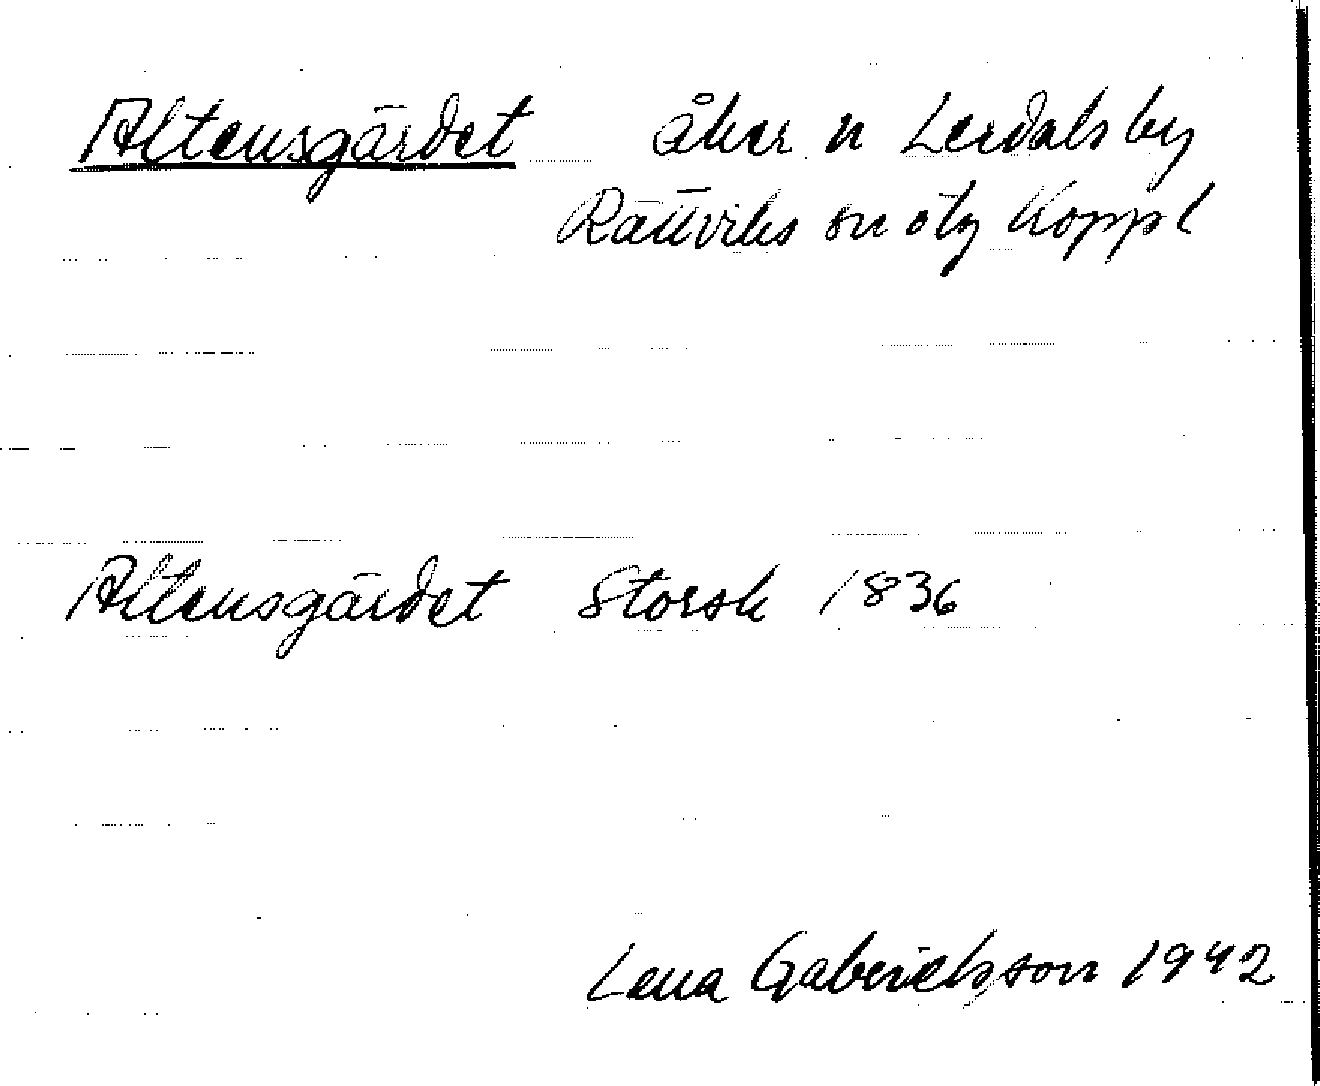 Altensgärdet åker n Lerdals by
Rättviks sn o tg Koppl
Altensgärdet Storsk 1836
Lena Gabrielsson 1942